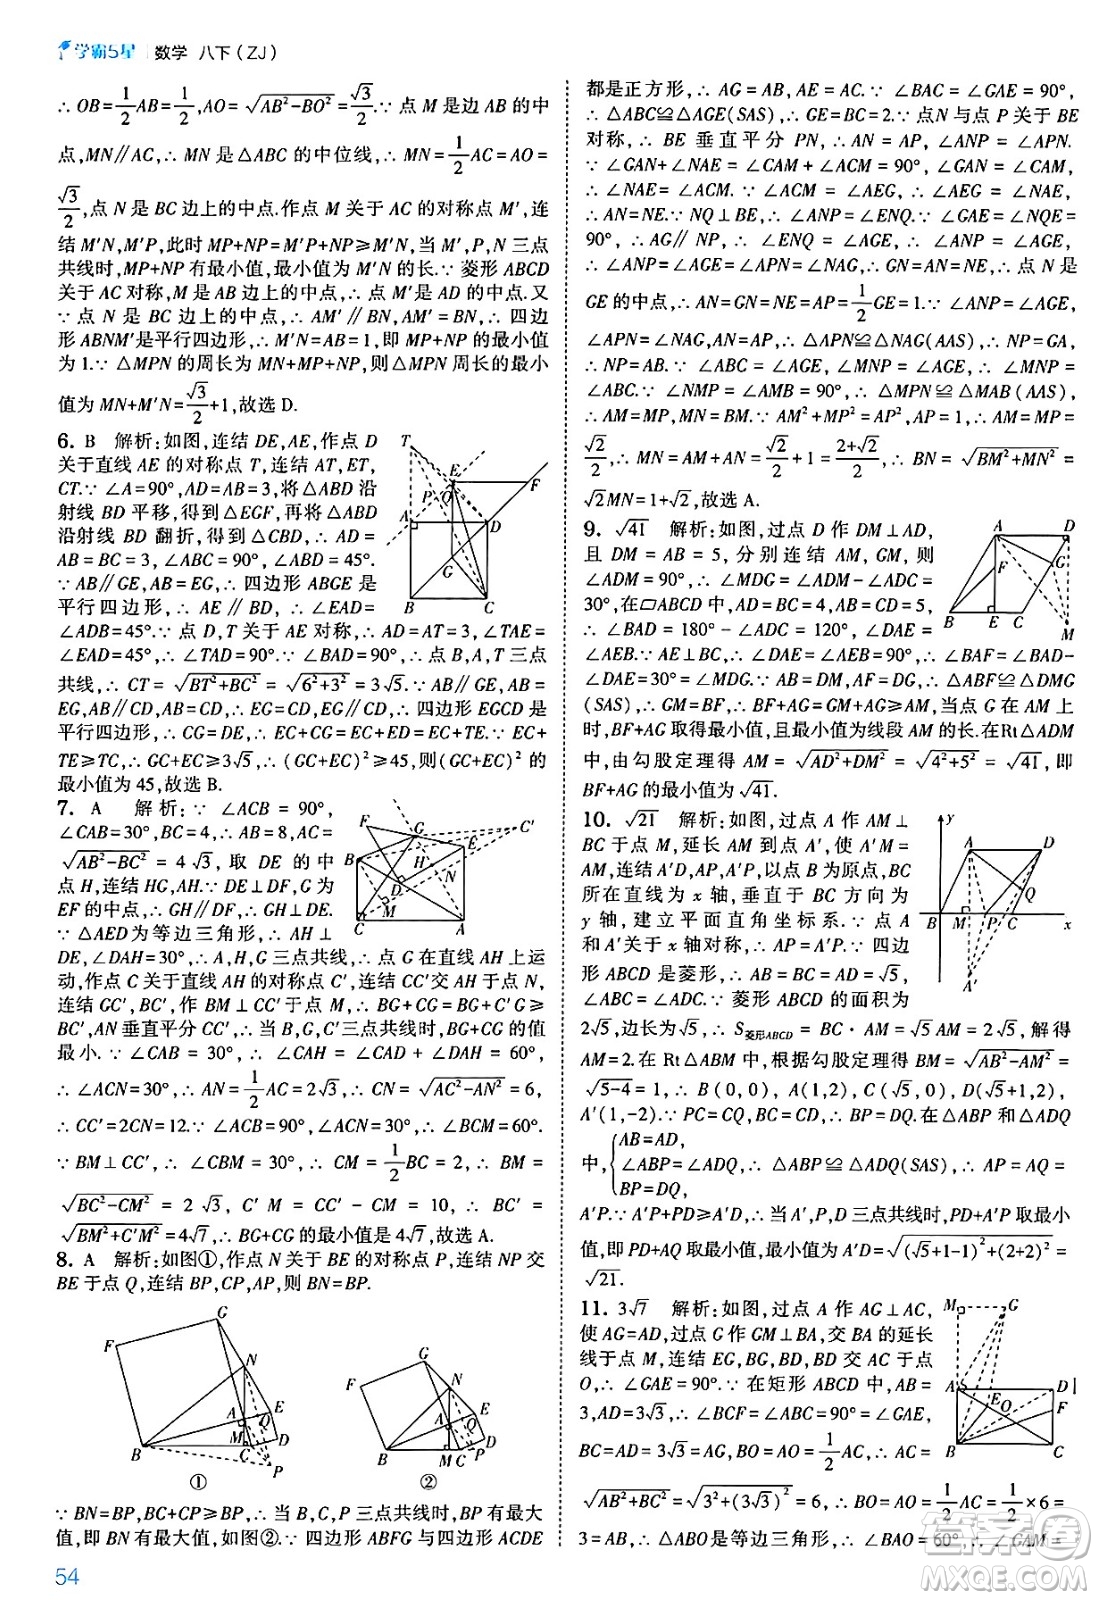 学霸5星 数学 八下(ZJ)
∴ OB=1/2AB=1/2,AO=√(AB²-BO²)=√3/2.∵ 点 M 是边 AB 的中
点,MN∥AC,∴ MN 是△ABC 的中位线,∴ MN=1/2AC=AO=
√3/2,点 N 是 BC 边上的中点.作点 M 关于 AC 的对称点 M′,连
结 M′N,M′P,此时 MP+NP=M′P+NP≥M′N,当 M′,P,N 三点
共线时,MP+NP 有最小值,最小值为 M′N 的长.∵ 菱形 ABCD
关于 AC 对称,MN=√3/2,∴ 点 M′是 AD 的中点.又
∵ 点 N 是 BC 的中点,∴ AM′∥BN,AM′=BN,∴ 四边
形 ABNM′是平行四边形,∴ M′N=AB=1,即 MP+NP 的最小值
为 1.∵ △MPN 的周长为 MN+MP+NP,则△MPN 周长的最小
值为 MN+M′N=√3/2+1,故选 D.
6. B 解析:如图,连结 DE,AE,作点 D
关于直线 AE 的对称点 T,连结 AT,ET,
CT.∵ ∠A=90°,AD=AB=3,将△ABD 沿
射线 BD 平移,得到△EGF,再将△ABD
沿射线 BD 翻折,得到△CBD,∴ AD=
AB=BC=3,∠ABC=90°,∠ABD=45°.
∵ AB∥GE,AB=EG,∴ 四边形 ABGE 是
平行四边形,∴ AE∥BD,∴ ∠EAD=
∠ADB=45°.∵ 点 D,T 关于 AE 对称,∴ AD=AT=3,∠TAE=
∠EAD=45°,∴ ∠TAD=90°.∵ ∠BAD=90°,∴ 点 B,A,T 三点
共线,∴ CT=√(BT²+BC²)=√(6²+3²)=3√5.∵ AB∥GE,AB=
EG,AB∥CD,AB=CD,∴ EG=CD,EG∥CD,∴ 四边形 EGCD 是
平行四边形,∴ CG=DE,∴ EC+CG=EC+ED=EC+TE.∵ EC+
TE≥TC,∴ GC+EC≥3√5,∴ (GC+EC)²≥45,则(GC+EC)²的
最小值为 45,故选 B.
7. A 解析:∵ ∠ACB=90°,
∠CAB=30°,BC=4,∴ AB=8,AC=
√(AB²-BC²)=4√3,取 DE 的中
点 H,连结 HG,AH.∵ 点 G 为
EF 的中点,∴ GH∥DF,∴ GH⊥DE.
∵ △AED 为等边三角形,∴ AH⊥
DE,∠DAH=30°,∴ A,H,G 三点共线,∴ 点 G 在直线 AH 上运
动,作点 C 关于直线 AH 的对称点 C′,连结 CC′交 AH 于点 N,
连结 GC′,BC′,作 BM⊥CC′于点 M,∴ BG+CG=BG+C′G≥
BC′,AN 垂直平分 CC′,∴ 当 B,G,C′三点共线时,BG+CG 的值
最小.∵ ∠CAB=30°,∴ ∠CAH=∠CAB+∠DAH=60°,
∴ ∠ACN=30°,∴ AN=1/2AC=2√3,∴ CN=√(AC²-AN²)=6,
∴ CC′=2CN=12.∵ ∠ACB=90°,∠ACN=30°,∴ ∠BCM=60°.
∵ BM⊥CC′,∴ ∠CBM=30°,∴ CM=1/2BC=2,∴ BM=
√(BC²-CM²)=2√3,C′M=CC′-CM=10,∴ BC′=
√(BM²+C′M²)=4√7,∴ BG+CG 的最小值是 4√7,故选 A.
8. A 解析:如图①,作点 N 关于 BE 的对称点 P,连结 NP 交
BE 于点 Q,连结 BP,CP,AP,则 BN=BP.
① ②
∵ BN=BP,BC+CP≥BP,∴ 当 B,C,P 三点共线时,BP 有最大
值,即 BN 有最大值,如图②.∵ 四边形 ABFG 与四边形 ACDE
都是正方形,∴ AG=AB,AE=AC.∵ ∠BAC=∠GAE=90°,
∴ △ABC≌△AGE(SAS),∴ GE=BC=2.∵ 点 N 与点 P 关于 BE
对称,∴ BE 垂直平分 PN,∴ AN=AP,∴ ∠ANP=∠APN.
∵ ∠GAN+∠NAE=∠CAM+∠ACM=90°,∠GAN=∠CAM,
∴ ∠NAE=∠ACM.∵ ∠ACM=∠AEG,∴ ∠AEG=∠NAE,
∴ AN=NE.∵ NQ⊥BE,∴ ∠ANP=∠ENQ.∵ ∠GAE=∠NQE=
90°,∴ AG∥NP,∴ ∠ENQ=∠AGE,∴ ∠ANP=∠AGE,
∴ ∠AGE=∠ANP=∠APN=∠NAG,∴ GN=AN=NE,∴ 点 N 是
GE 的中点,∴ AN=GN=NE=AP=1/2GE=1.∵ ∠ANP=∠AGE,
∠APN=∠NAG,AN=NG,∴ △APN≌△NAG(AAS),∴ NP=GA,
∴ NP=AB.∵ ∠ABC=∠AGE,∠AGE=∠MNP,∴ ∠ABC=
∠MNP.∵ ∠NMP=∠AMB=90°,∴ △MPN≌△MAB(AAS),
∴ AM=MP,MN=BM.∵ AM²+MP²=AP²,AP=1,∴ AM=MP=
√2/2,∴ MN=AM+AN=√2/2+1=(2+√2)/2,∴ BN=√(BM²+MN²)=
√2MN=1+√2,故选 A.
9. √41 解析:如图,过点 D 作 DM⊥AD,
且 DM=AB=5,分别连结 AM,GM,则
∠ADM=90°,∴ ∠MDG=∠ADM-∠ADC=
30°,在▱ABCD 中,AD=BC=4,AB=CD=5,
∴ ∠BAD=180°-∠ADC=120°,∠DAE=
∠AEB.∵ AE⊥BC,∴ ∠DAE=∠AEB=90°,∴ ∠BAF=∠BAD-
∠DAE=30°=∠MDG.∵ AF=DG,∴ △ABF≌△DMG
(SAS),∴ GM=BF,∴ BF+AG=GM+AG≥AM,当点 G 在 AM 上
时,BF+AG 取得最小值,且最小值为线段 AM 的长.在Rt△ADM
中,由勾股定理得 AM=√(AD²+DM²)=√(4²+5²)=√41,即
BF+AG 的最小值为 √41.
10. √21 解析:如图,过点 A 作 AM⊥
BC 于点 M,延长 AM 到点 A′,使 A′M=
AM,连结 A′D,A′P,以点 B 为原点,BC
所在直线为 x 轴,垂直于 BC 方向为
y 轴,建立平面直角坐标系.∵ 点 A
和 A′关于 x 轴对称,∴ AP=A′P.∵ 四边
形 ABCD 是菱形,∴ AB=BC=AD=√5,
∠ABC=∠ADC.∵ 菱形 ABCD 的面积为
2√5,边长为√5,∴ S菱形ABCD=BC·AM=√5AM=2√5,解得
AM=2.在 Rt△ABM 中,根据勾股定理得 BM=√(AB²-AM²)=
√(5-4)=1,∴ B(0,0),A(1,2),C(√5,0),D(√5+1,2),
A′(1,-2).∵ PC=CQ,BC=CD,∴ BP=DQ.在△ABP 和△ADQ
中,{AB=AD,∠ABP=∠ADQ,BP=DQ,∴ △ABP≌△ADQ(SAS),∴ AP=AQ=
A′P.∵ A′P+PD≥A′D,∴ 当 A′,P,D 三点共线时,PD+AQ 取最小
值,即 PD+AQ 取最小值为 A′D=√((√5+1-1)²+(2+2)²)=
√21.
11. 3√7 解析:如图,过点 A 作 AG⊥AC,
使 AG=AD,过点 G 作 GM⊥BA,交 BA 的延长
线于点 M,连结 EG,BG,BD,BD 交 AC 于点
O,∴ ∠GAE=90°.∵ 在矩形 ABCD 中,AB=
3,AD=3√3,∴ ∠BCF=∠ABC=90°=∠GAE,
BC=AD=3√3=AG,BO=AO=1/2AC,∴ AC=
√(AB²+BC²)=√(3²+(3√3)²)=6,∴ BO=AO=1/2AC=1/2×6=
3=AB,∴ △ABO是等边三角形,∴ ∠BAO=60°,∴ ∠GAM=
54
答案圈
MXQE.COM